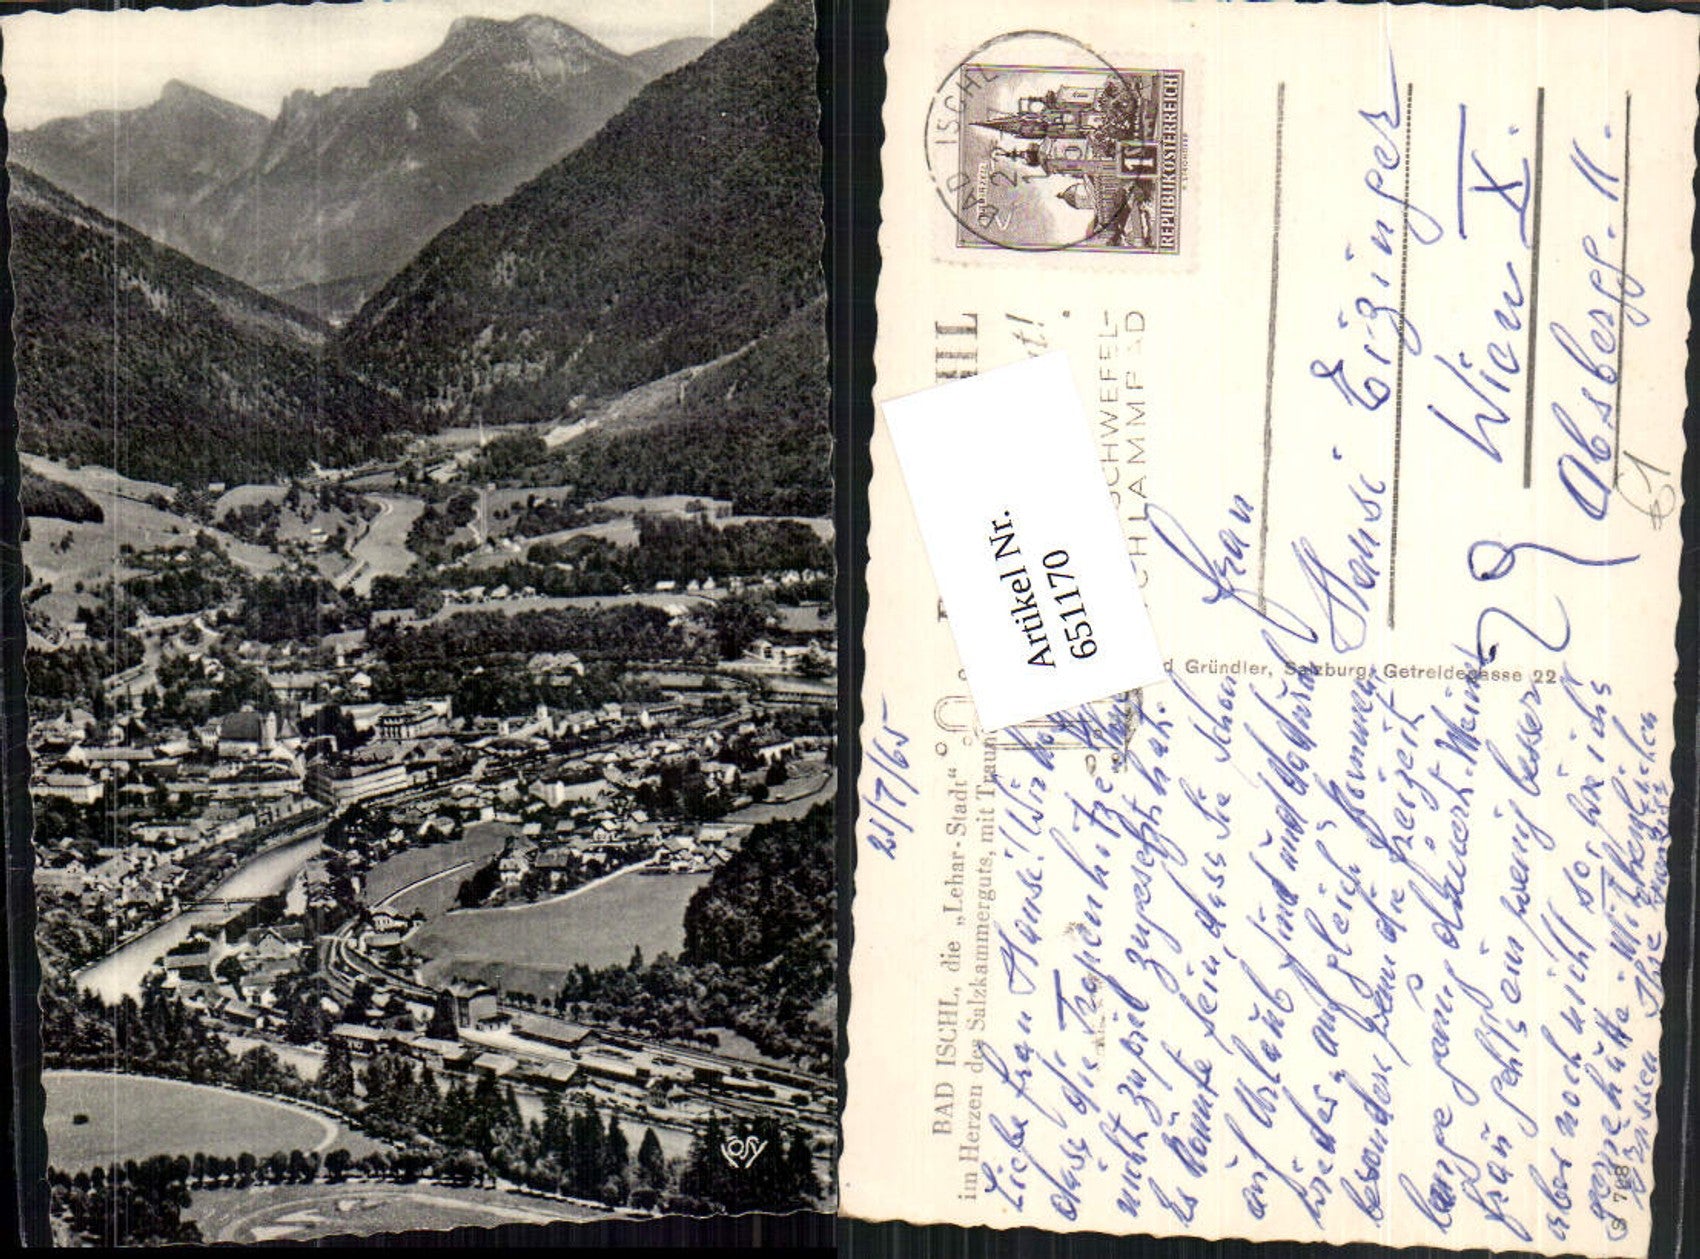 COSY
BAD ISCHL
22
MARIAZELL
REPUBLIK ÖSTERREICH
1
SCHWEFEL-
SCHLAMMBAD
Artikel Nr.
651170
BAD ISCHL, die „Lehar-Stadt“
im Herzen des Salzkammerguts, mit Traun
d Gründler, Salzburg, Getreidegasse 22
S 708
21/7/65
Liebe Frau Hansi! Wir
dass die Tropenhitze
nicht zuviel zugesetzt hat.
Es könnte sein, dass Sie schon
auf Urlaub sind und dadurch
wieder auf gleich kommen
besonders wenn die Freizeit
lange genug dauert. Meine
Frau geht's ein wenig besser
aber noch nicht so, wie ich's
gerne hätte. Mit herzlichen
Grüssen Ihre
Frau
Hansi Eizinger
Wien X.
Absbergg. 11.
61